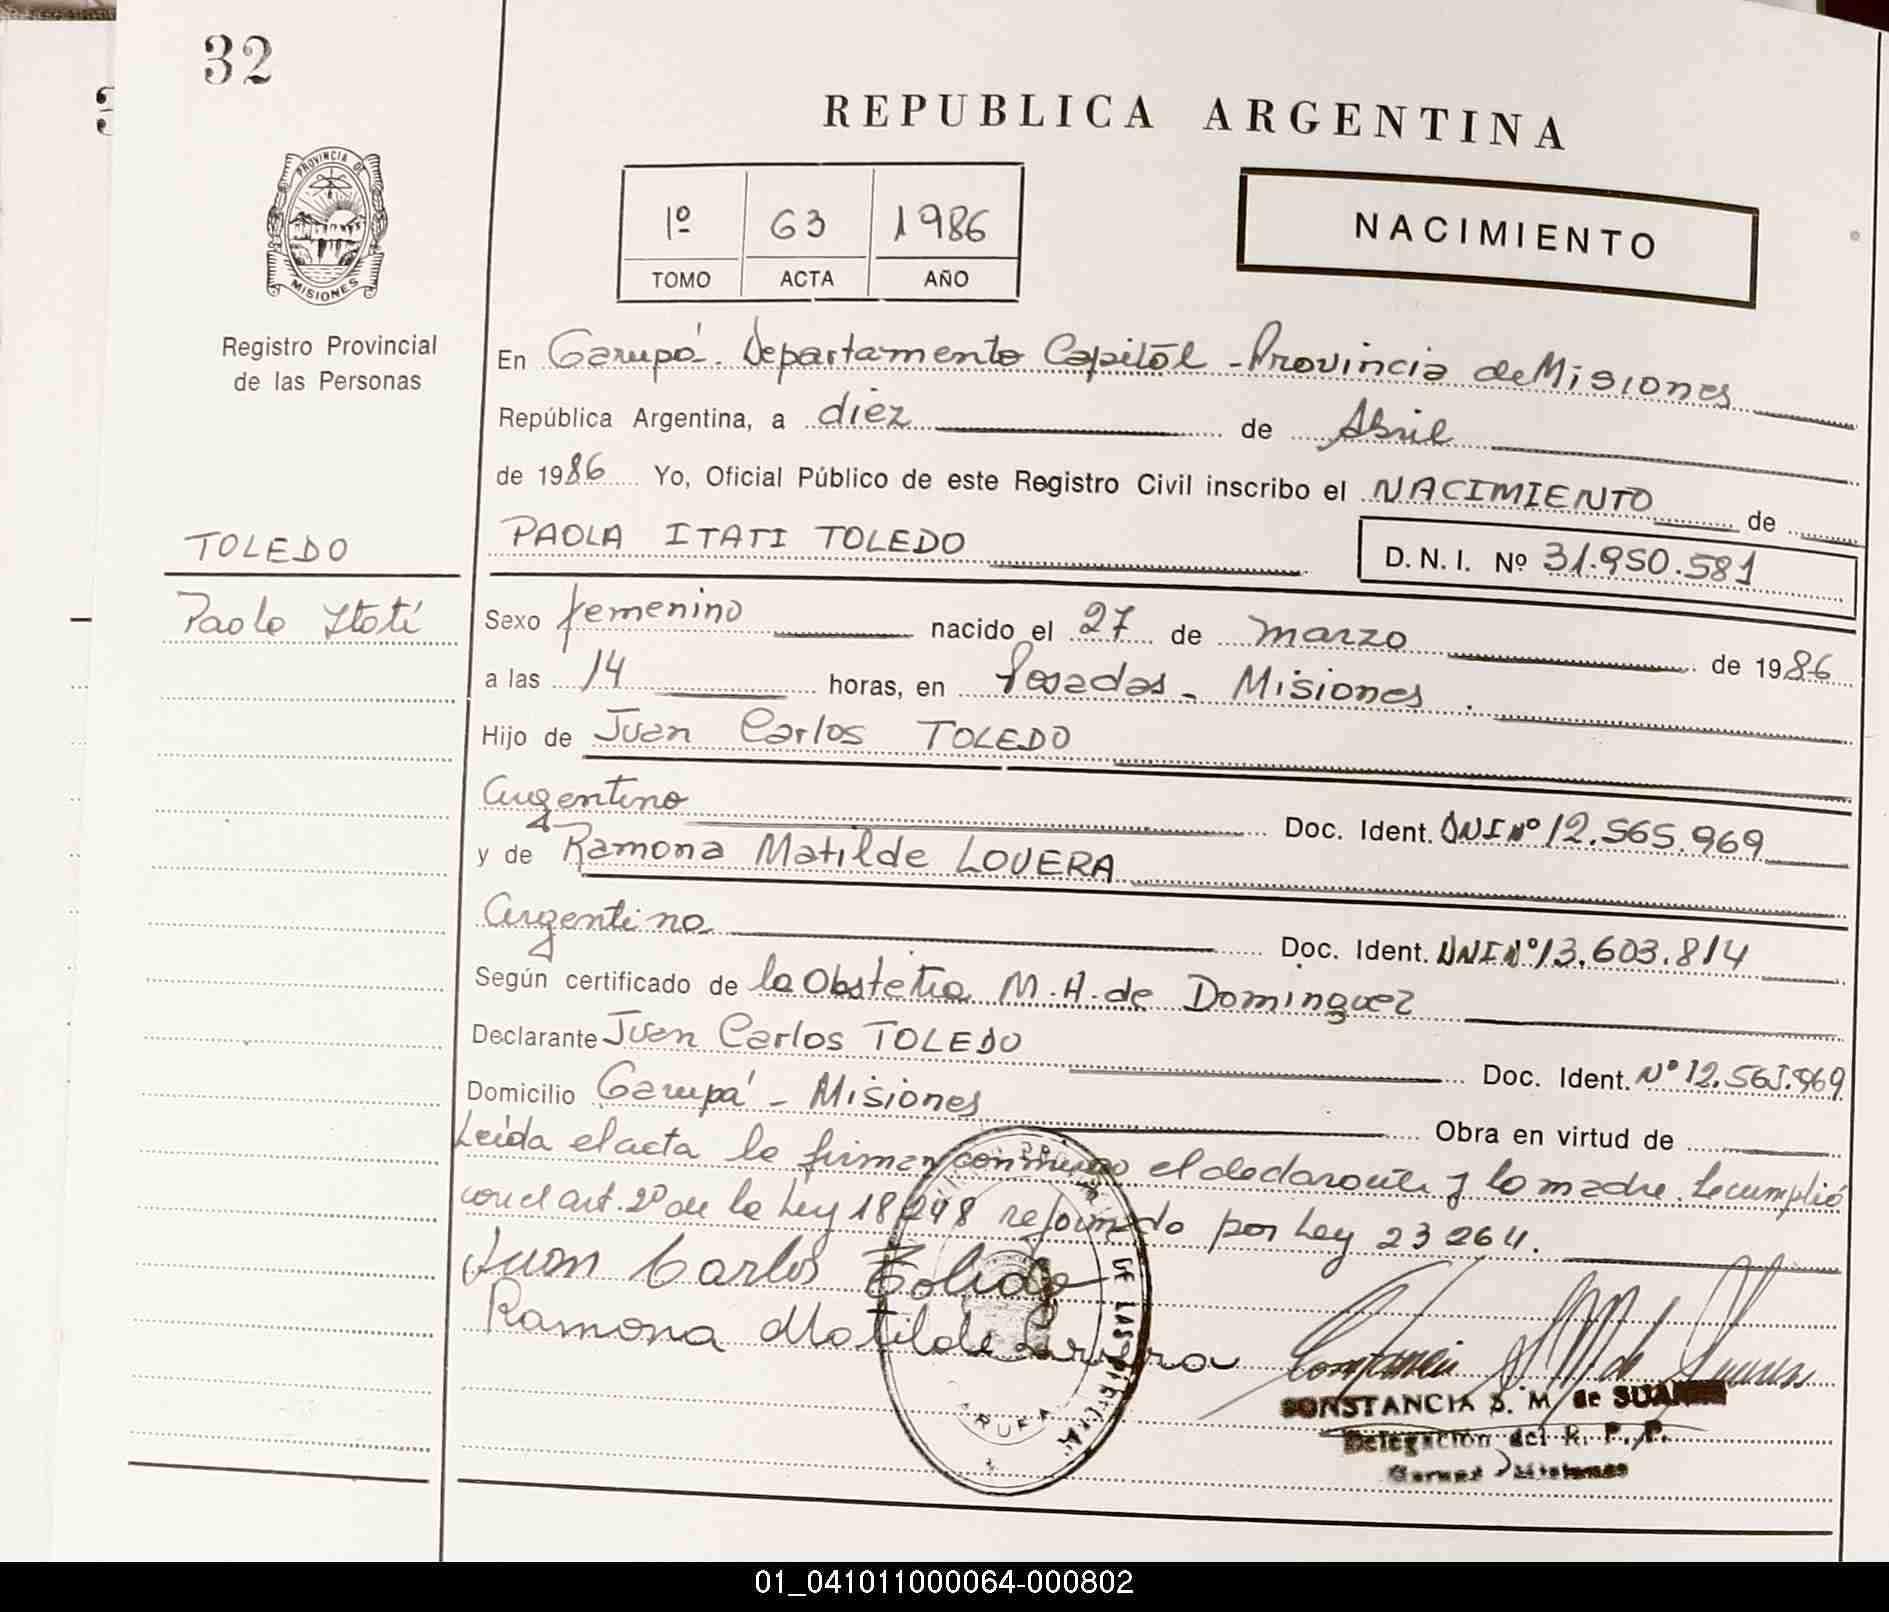 32
REPUBLICA ARGENTINA
PROVINCIA DE
MISIONES
1º 63 1986
TOMO ACTA AÑO
NACIMIENTO
Registro Provincial
de las Personas
En Garupá. Departamento Capital - Provincia de Misiones
República Argentina, a diez de Abril
de 1986 Yo, Oficial Público de este Registro Civil inscribo el NACIMIENTO de
TOLEDO
PAOLA ITATI TOLEDO
D. N. I. Nº 31.950.581
Paola Itatí
Sexo femenino nacido el 27 de marzo de 1986
a las 14 horas, en Posadas - Misiones.
Hijo de Juan Carlos TOLEDO
Argentino Doc. Ident. DNI Nº 12.565.969
y de Ramona Matilde LOVERA
Argentina Doc. Ident. DNI Nº 13.603.814
Según certificado de la Obstetra M.H. de Dominguez
Declarante Juan Carlos TOLEDO Doc. Ident. Nº 12.565.969
Domicilio Garupá - Misiones Obra en virtud de
Leída el acta la firman conmigo el declarante y la madre. Se cumplió
con el art. 2º de la Ley 18248 reformado por Ley 23264.
Juan Carlos Toledo
Ramona Matilde
DE LAS
CONSTANCIA S. M. de
Delegación del R. P. P.
Garupá Misiones
01_041011000064-000802